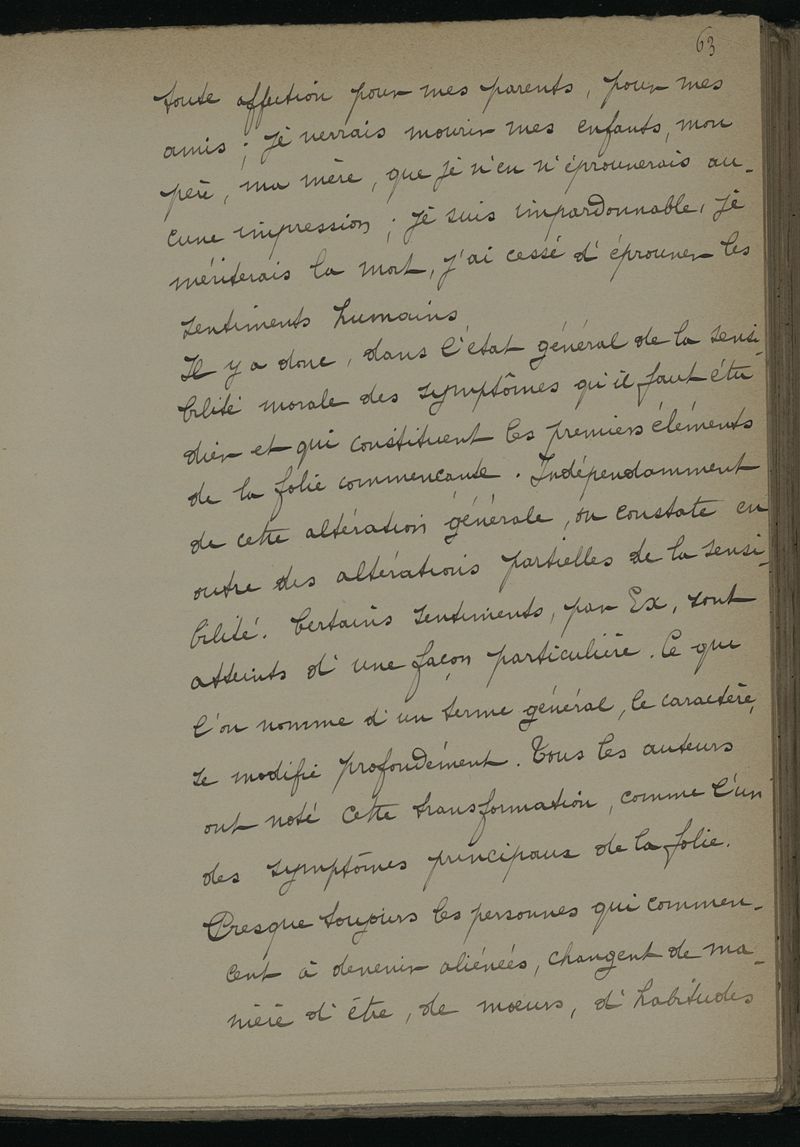 63
toute affection pour mes parents, pour mes
amis ; je verrais mourir mes enfants, mon
père, ma mère, que je n'en n'éprouverais au-
cune impression ; je suis impardonnable, je
mériterais la mort, j'ai cessé d'éprouver les
sentiments humains
Il y a donc, dans l'état général de la sensi-
bilité morale des symptômes qu'il faut étu
dier et qui constituent les premiers éléments
de la folie commencante. Indépendamment
de cette altération générale, on constate en
outre des altérations partielles de la sensi-
bilité. Certains sentiments, par Ex, sont
atteints d'une façon particulière. Ce que
l'on nomme d'un terme général, le caractère,
se modifie profondément. Tous les auteurs
ont noté cette transformation, comme l'un
des symptômes principaux de la folie.
Presque toujours les personnes qui commen-
cent à devenir aliénées, changent de ma-
nière d'être, de mœurs, d'habitudes